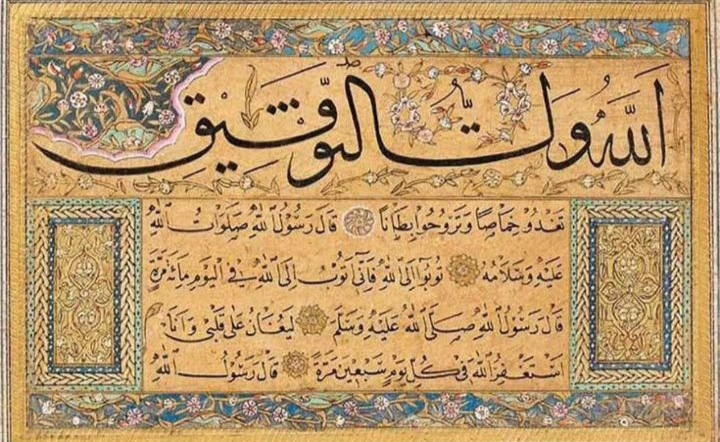 الله ولى التوفيق
تغدو خماصًا وتروحوا بطانًا قال رسول الله صلوات الله
عليه وسلامه توبوا الى الله فانى اتوب الى الله فى اليوم مائة مرة
قال رسول الله صلى الله عليه وسلم ليغان على قلبى وانا
استغفر الله فى كل يوم سبعين مرة قال رسول الله